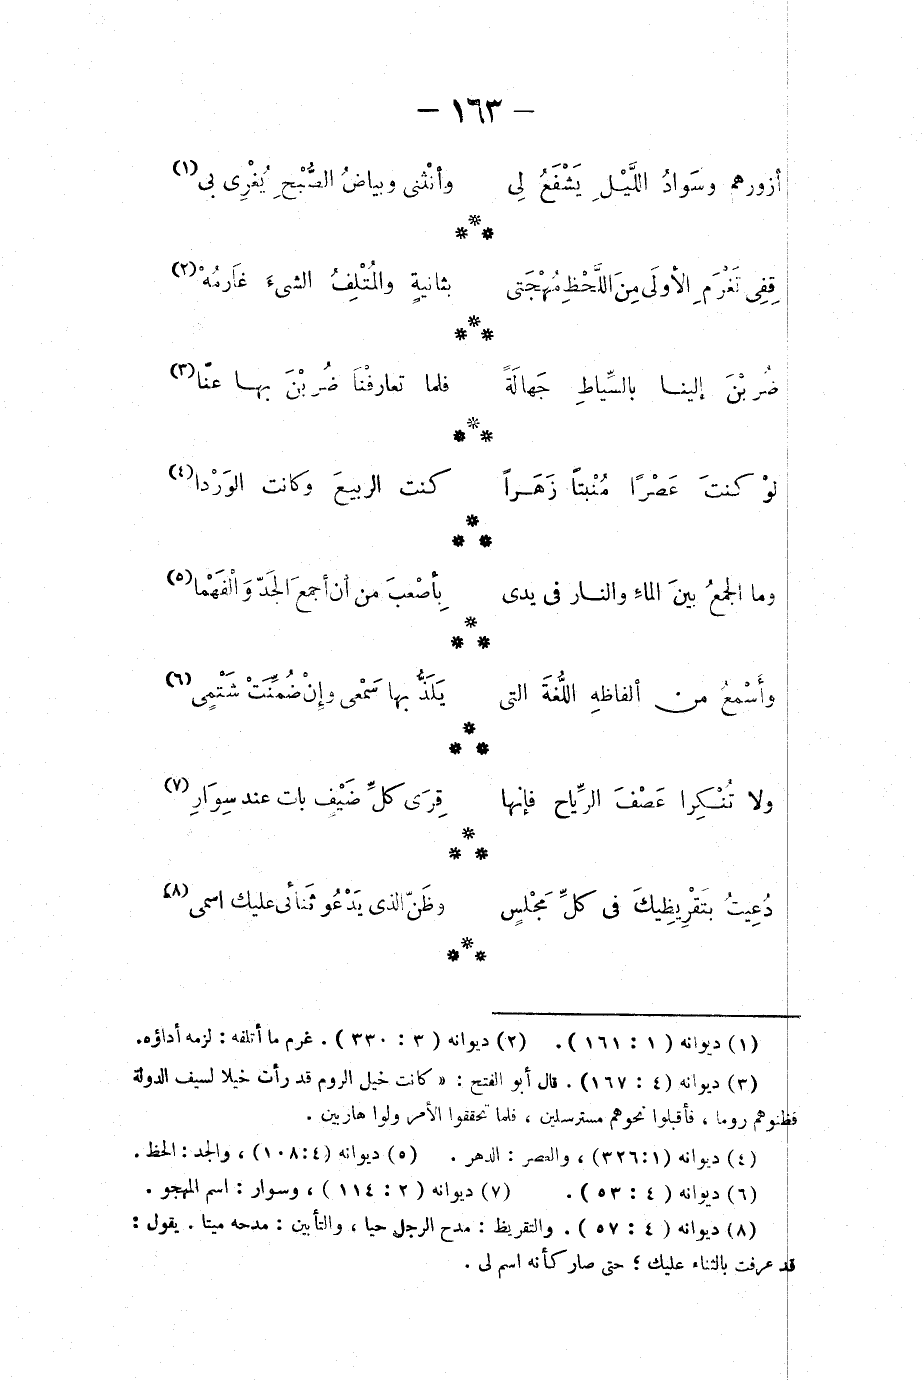 — ١٦٣ —
أزورهم وسَوادُ اللَّيْلِ يَشْفَعُ لِى وأنْثنى وبياضُ الصُّبْحِ يُغْرِى بى (١)
***
قِفِى تَغْرَمِ الأولَى مِنَ اللَّحْظِ مُهْجَتى بثانيةٍ والمُتْلِفُ الشىءَ غَارِمُهْ (٢)
***
ضُرِبْنَ إلينا بالسِّياطِ جَهالَةً فلما تعارفْنَا ضُرِبْنَ بها عنَّا (٣)
***
لوْ كنتَ عَصْرًا مُنْبتاً زَهَراً كنت الربيعَ وكانت الوَرْدا (٤)
***
وما الجمعُ بينَ الماءِ والنار فى يدى بِأصْعبَ من أن أجمعَ الجَدّ وَالْفَهْما (٥)
***
وأَسْمعُ من ألفاظهِ اللُّغةَ التى يَلَذُّ بها سَمْعى وإِنْ ضُمِّنَتْ شَتْمِى (٦)
***
ولا تُنْكِرا عَصْفَ الرِّياح فإنها قِرَى كلِّ ضَيْفٍ بات عند سِوَارِ (٧)
***
دُعِيتُ بتَقْرِيظِيكَ فى كلِّ مَجْلسٍ وظَنّ الذى يَدْعُو ثَنائى عليك اسمى (٨)
***
(١) ديوانه ( ١ : ١٦١ ). (٢) ديوانه ( ٣ : ٣٣٠ ). غرم ما أتلفه : لزمه أداؤه.
(٣) ديوانه ( ٤ : ١٦٧ ). قال أبو الفتح : « كانت خيل الروم قد رأت خيلا لسيف الدولة
فظنوهم روما ، فأقبلوا نحوهم مسترسلين ، فلما تحققوا الأمر ولوا هاربين .
(٤) ديوانه (١ : ٣٢٦) ، والعصر : الدهر . (٥) ديوانه (٤ : ١٠٨) ، والجد : الحظ .
(٦) ديوانه ( ٤ : ٥٣ ). (٧) ديوانه ( ٢ : ١١٤ ) ، وسوار : اسم المهجو .
(٨) ديوانه ( ٤ : ٥٧ ). والتقريظ : مدح الرجل حيا ، والتأبين : مدحه ميتا . يقول :
قد عرفت بالثناء عليك ؛ حتى صار كأنه اسم لى .